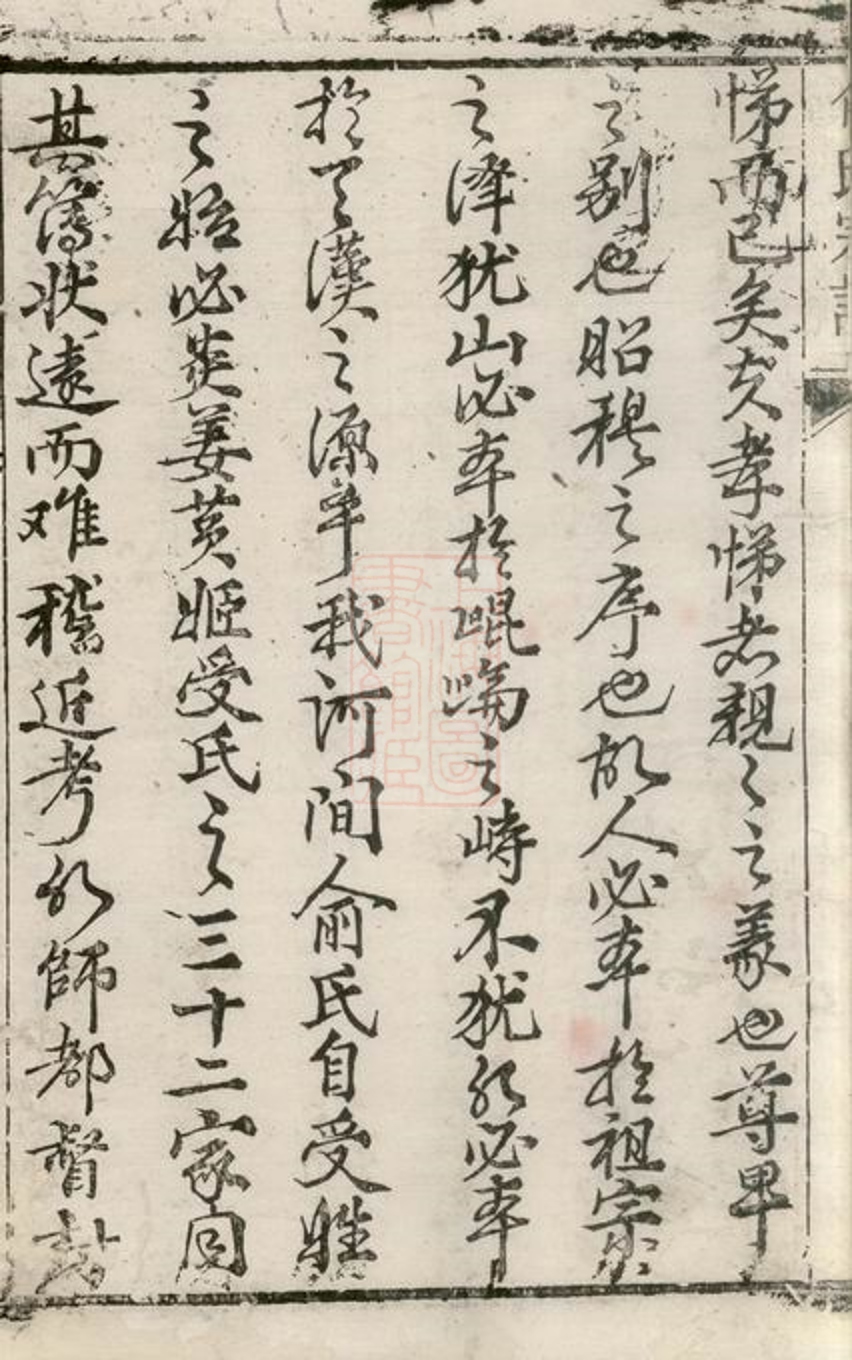 俞氏宗譜
悌而已矣夫孝悌者親〻之義也尊卑
之别也昭穆之序也故人必本於祖宗
之澤猶山必本於崐崘之峙不猶水必本
於天漢之源乎我河間俞氏自受姓
之始必炎姜黄姬受氏之三十二家
其簿状遠而难稽近考水師都督
上海圖書館藏